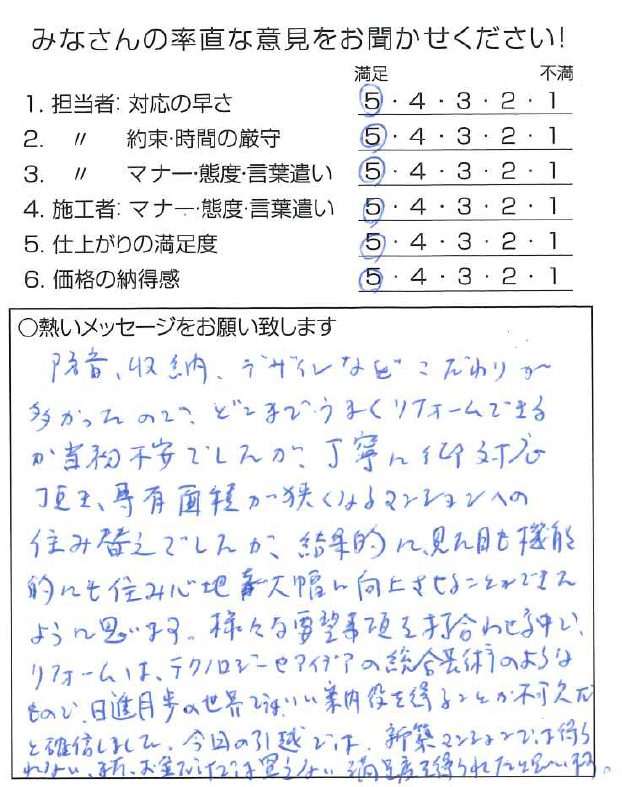 みなさんの率直な意見をお聞かせください!
満足 不満
1. 担当者: 対応の早さ 5・4・3・2・1
2. 〃 約束・時間の厳守 5・4・3・2・1
3. 〃 マナー・態度・言葉遣い 5・4・3・2・1
4. 施工者: マナー・態度・言葉遣い 5・4・3・2・1
5. 仕上がりの満足度 5・4・3・2・1
6. 価格の納得感 5・4・3・2・1
○熱いメッセージをお願い致します
防音、収納、デザインなどこだわりが
多かったので、どこまでうまくリフォームできる
か当初不安でしたが、丁寧に御対応
頂き、専有面積が狭くなるマンションへの
住み替えでしたが、結果的に、見た目も機能
的にも住み心地 大幅に向上させることができた
ように思います。様々な要望事項を 合わせる中で、
リフォームは、テクノロジーやアイデアの総合芸術のような
もので、日進月歩の世界ではいい案内役を得ることが不可欠だ
と確信しました。今回の引越では、新築マンションでは得ら
れない、また、お金だけでは買えない満足度を得られたと思います。